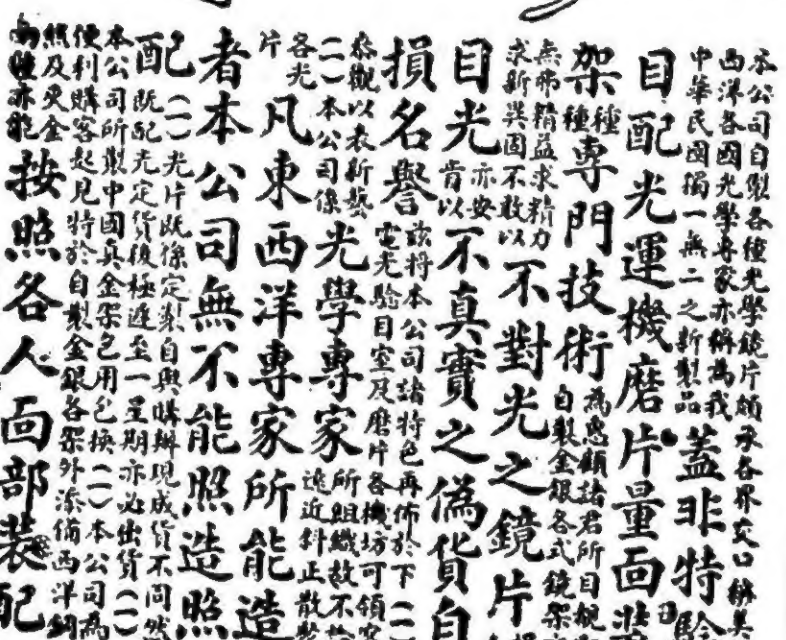 本公司自製各種光學鏡片頗承各界交口稱美
西洋各國光學專家亦稱為我
中華民國獨一無二之新製品
蓋非特驗
目配光運機磨片量面裝
架
種
種
專門技術
為惠顧諸君所目覩
自製金銀各式鏡架
無弗精益求精力
求新異固不敢以
不對光之鏡片
目光
亦安
肯以
不真實之偽貨自
損名譽
茲將本公司諸特色再佈於下(一)
電光驗目室及磨片各機坊可領客
參觀以表新藝
(二)本公司係
光學專家
所組織故不論
遠近斜正散
各光
片
凡東西洋專家所能造
者本公司無不能照造照
配
(一)光片既係定製自與購辦現成貨不同然
既配光定貨後極遲至一星期亦必出貨(一)
本公司所製中國真金架包用包換(一)本公司為
便利購客起見特於自製金銀各架外添備西洋鋼
及
金
種亦能
按照各人面部裝配